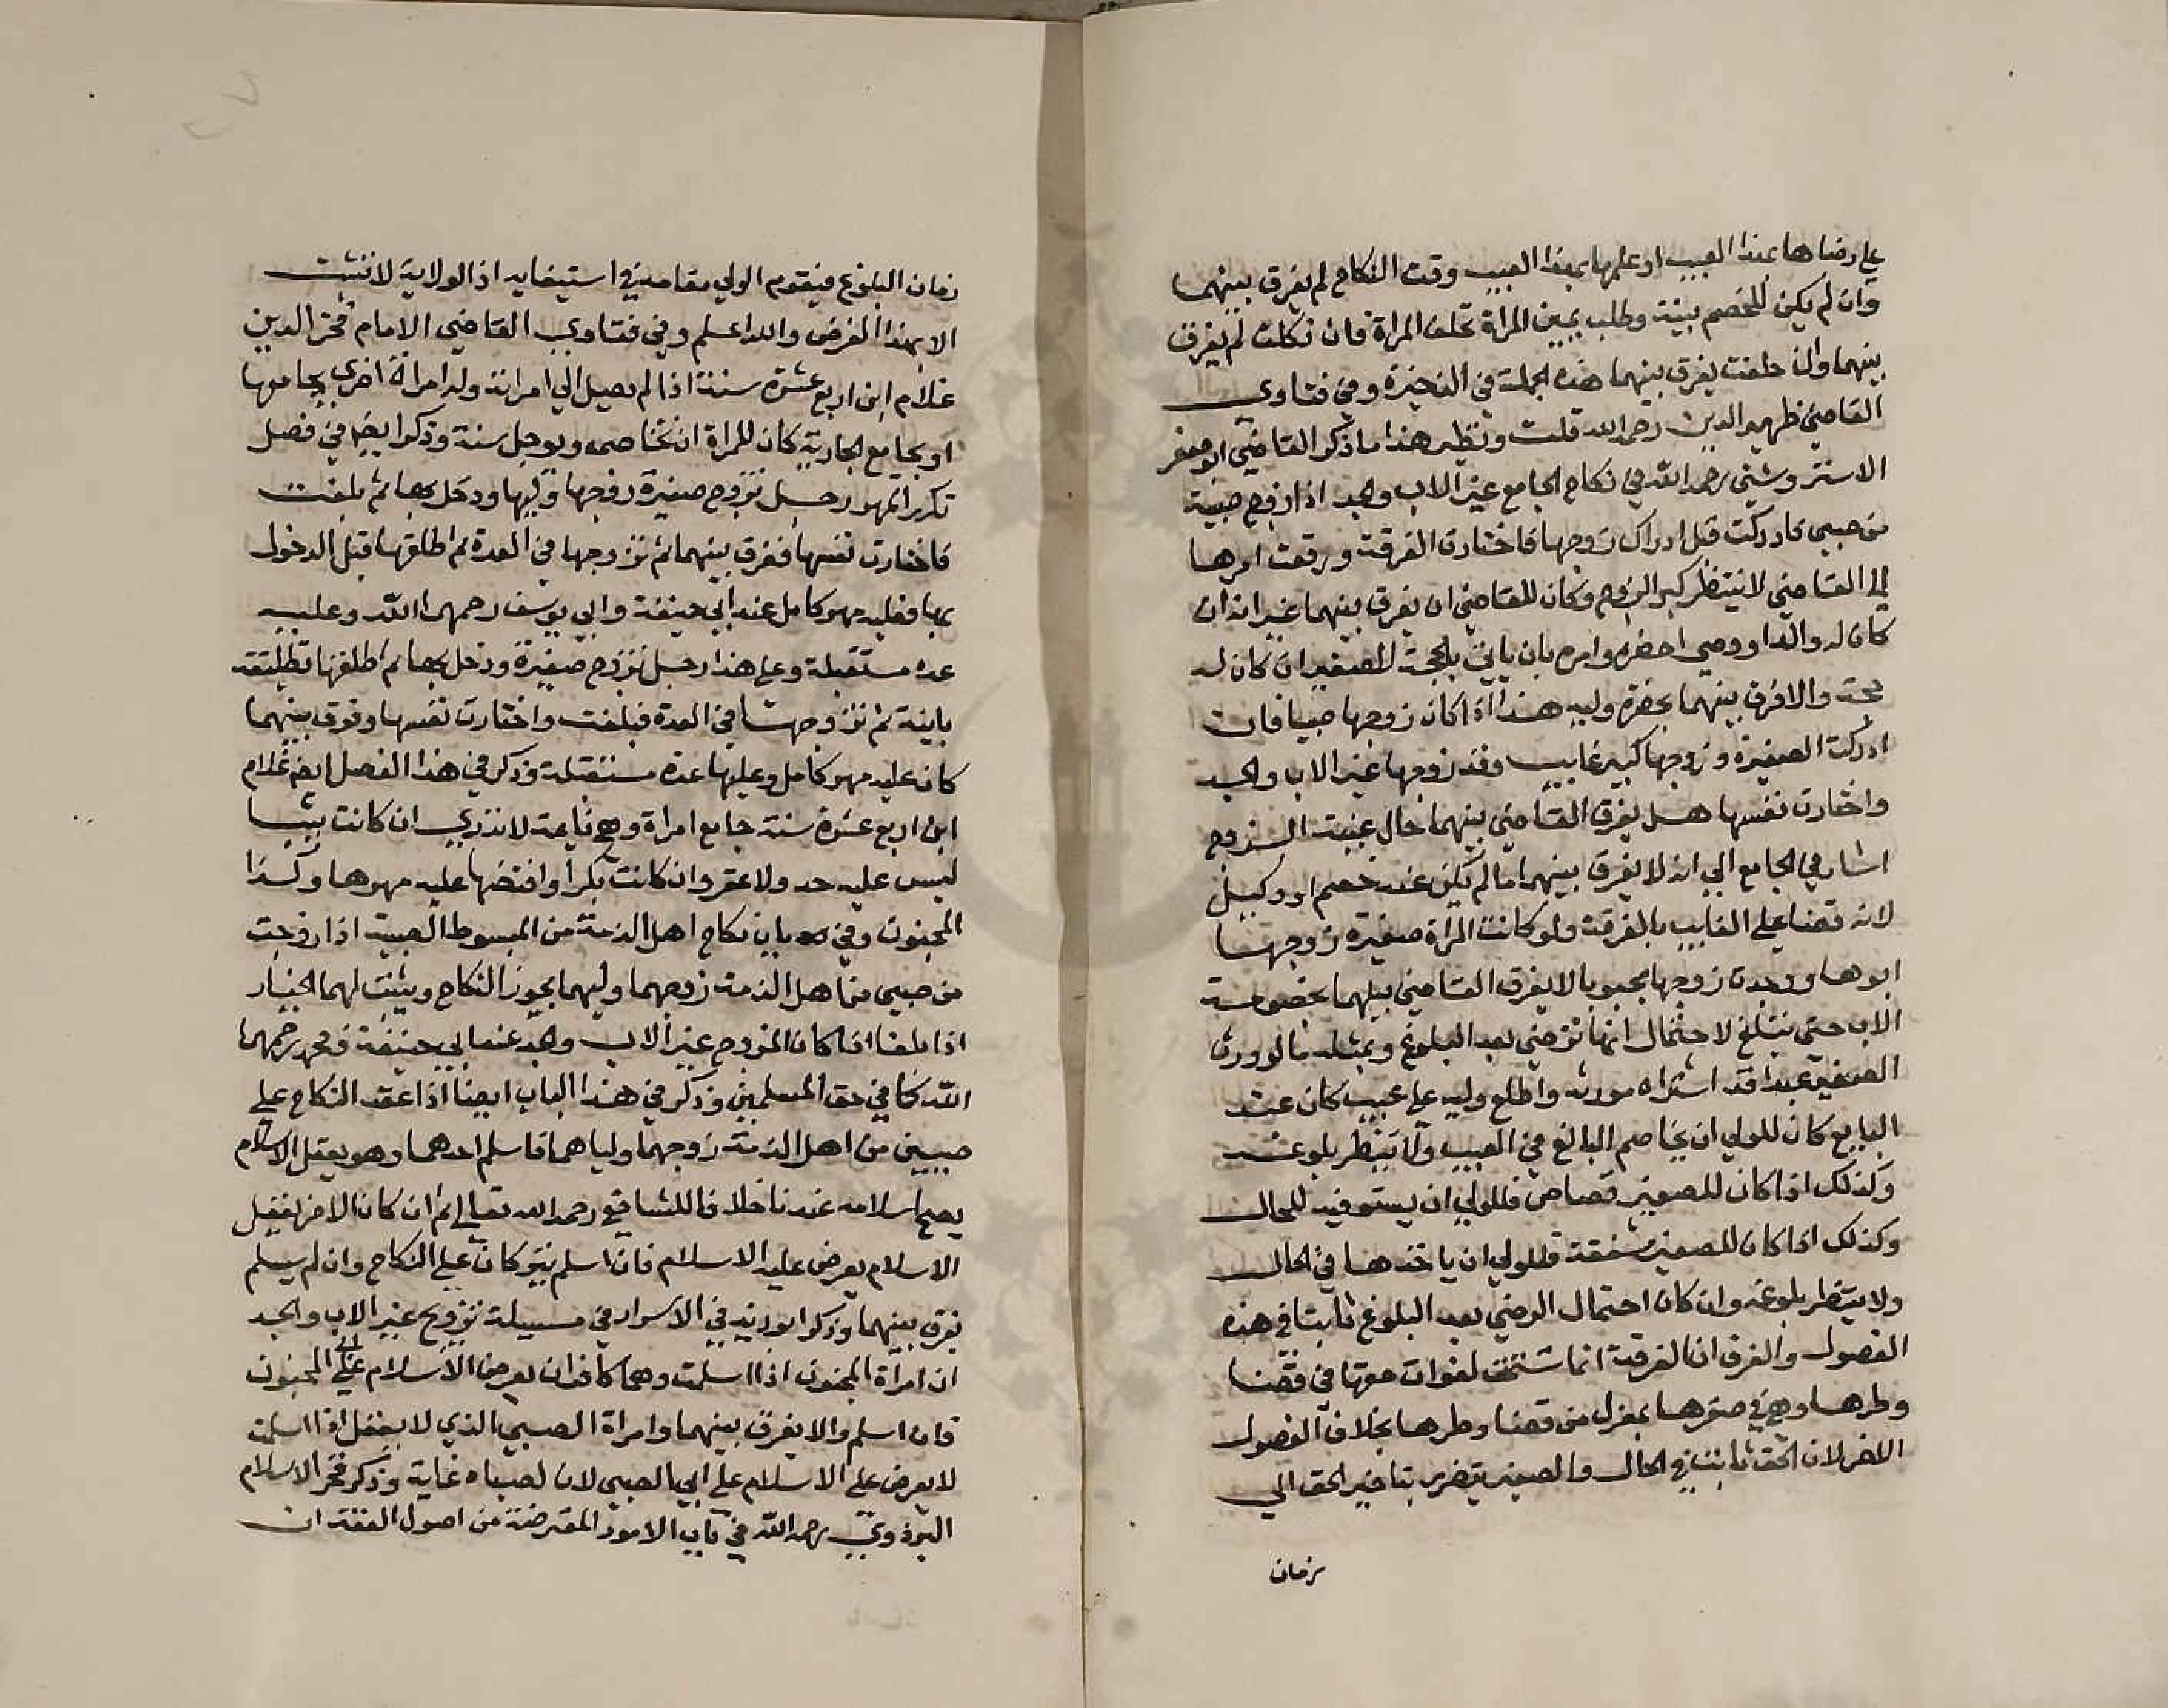 على رضاها عند العيب او علمها بهذا العيب وقت النكاح لم يفرق بينهما
وان لم يكن للخصم بينة وطلب يمين المراة تحلف المراة فان نكلت لم يفرق
بينهما وان حلفت يفرق بينهما هذه الجملة في الذخيرة وفي فتاوى
القاضي ظهير الدين رحمه الله قلت ونظير هذا ما ذكر القاضي ابو جعفر
الاستروشني رحمه الله في نكاح الجامع غير الاب والجد اذا زوج صبية
من صبي فادركت قبل ادراك زوجها فاختارت الفرقة ورفعت امرها
الى القاضي لا ينتظر كبر الزوج وكان للقاضي ان يفرق بينهما غير انه ان
كان له والد او وصي احضره وامره بان ياتي بالحجة للصغير ان كان له
حجة والا فرق بينهما بحضرة وليه هذا اذا كان زوجها صبيا فان
ادركت الصغيرة وزوجها كبير غايب وقد زوجها غير الاب والجد
واختارت نفسها هل يفرق القاضي بينهما حال غيبة الزوج
اشار في الجامع الى انه لا يفرق بينهما ما لم يكن عنه خصم او وكيل
لانه قضا على الغايب بالفرقة ولو كانت المراة صغيرة زوجها
ابوها ووجدت زوجها مجبوبا لا يفرق القاضي بينهما بخصومة
الاب حتى تبلغ لاحتمال انها ترضى بعد البلوغ وبمثله ما لو ورث
الصغير عبدا قد اشتراه مورثه واطلع وليه على عيب كان عند
البايع كان للولي ان يخاصم البايع في العيب ولا ينتظر بلوغه
وكذلك اذا كان للصغير قصاص فللولي ان يستوفيه للحال
وكذلك اذا كان للصغير شفعة فللولي ان ياخذها في الحال
ولا ينتظر بلوغه وان كان احتمال الرضى بعد البلوغ ثابتا في هذه
الفصول والفرق ان الفرقة انما تستحق لفوات حقها في قضا
وطرها وهي في صغرها بمعزل من قضا وطرها بخلاف الفصول
الاخر لان الحق ثابت في الحال والصغير يتضرر بتاخير الحق الى
زمان
زمان البلوغ فيقوم الولي مقامه في استيفايه اذ الولاية لا تثبت
الا بهذا الغرض والله اعلم وفي فتاوى القاضي الامام فخر الدين
غلام ابن اربع عشرة سنة اذا لم يصل الى امراته وله امراة اخرى يجامعها
او يجامع الجارية كان للمراة ان تخاصمه ويوجل سنة وذكر ايضا في فصل
تكرر المهور رجل تزوج صغيرة زوجها وليها ودخل بها ثم بلغت
فاختارت نفسها ففرق بينهما ثم تزوجها في العدة ثم اطلقها قبل الدخول
بها فعليه مهر كامل عند ابي حنيفة وابي يوسف رحمهما الله وعليه
عدة مستقبلة وعلى هذا رجل تزوج صغيرة ودخل بها ثم اطلقها تطليقة
باينة ثم تزوجها في العدة فبلغت واختارت نفسها وفرق بينهما
كان عليه مهر كامل وعليها عدة مستقبلة وذكر في هذا الفصل ايضا غلام
ابن اربع عشرة سنة جامع امراة وهي نايمة لا تدري ان كانت ثيبا
ليس عليه حد ولا عقر وان كانت بكرا وافتضها عليه مهرها وكذا
المجنون وفي باب نكاح اهل الذمة من المبسوط الصبية اذا زوجت
من صبي من اهل الذمة زوجهما وليهما يجوز النكاح ويثبت لهما الخيار
اذا بلغا اذا كان المزوج غير الاب والجد عند ابي حنيفة ومحمد رحمهما
الله كما في حق المسلمين وذكر في هذا الباب ايضا اذا عقد النكاح على
صبيين من اهل الذمة زوجهما ولياهما فاسلم احدهما وهو يعقل الاسلام
يصح اسلامه عندنا خلافا للشافعي رحمه الله تعالى ثم ان كان الاخر يعقل
الاسلام يعرض عليه الاسلام فان اسلم يتركان على النكاح وان لم يسلم
يفرق بينهما وذكر ابو زيد في الاسرار في مسيلة تزويج غير الاب والجد
ان امراة المجنون اذا اسلمت وهما كافران يعرض الاسلام على المجنون
فان اسلم والا يفرق بينهما وامراة الصبي الذي لا يعقل اذا اسلمت
لا يعرض على الاسلام على ابي الصبي لان لصباه غاية وذكر فخر الاسلام
البزدوي رحمه الله في باب الامور المعترضة من اصول الفقه ان